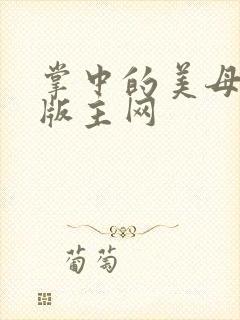 掌中的美母
版主网
葡萄